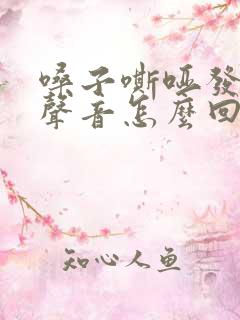 嗓子嘶哑發
聲音怎麼回
知心人鱼